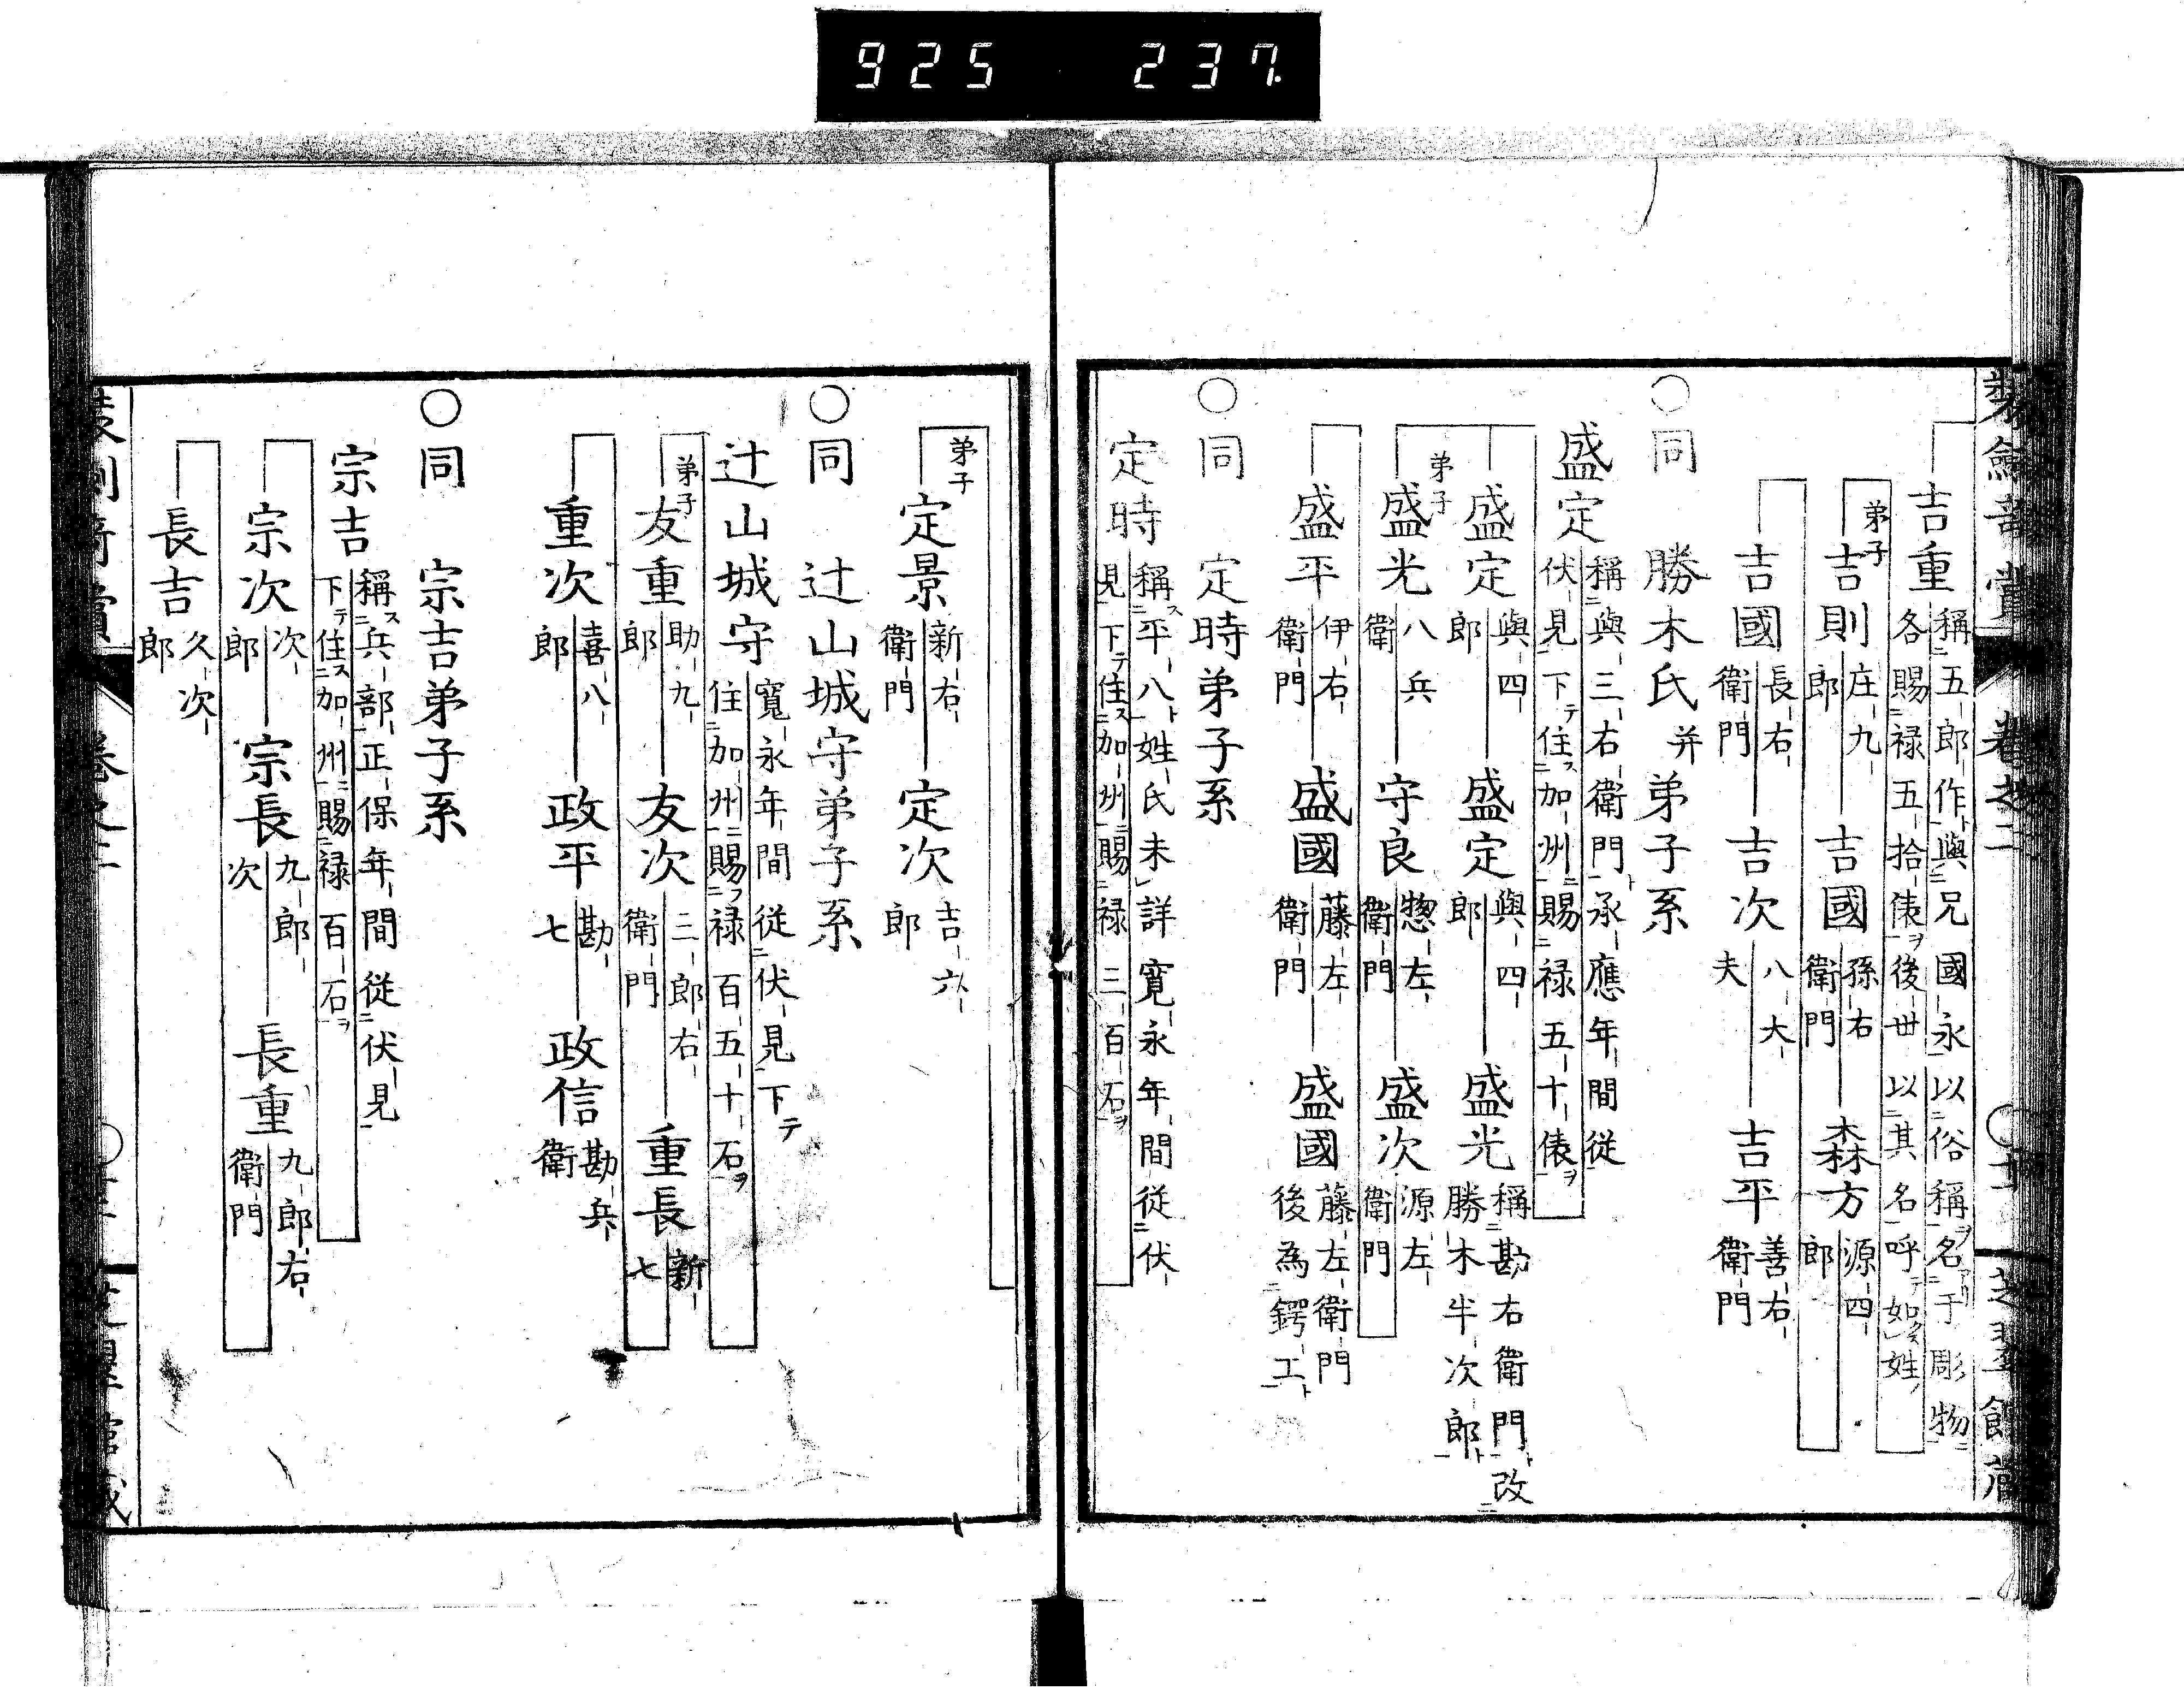 925 237
吉重 稱五郎作與兄國永以俗稱名于彫物
各賜禄五拾俵後世以其名呼如姓
弟子
吉則 庄九郎 吉國 孫右衛門 森方 源四郎
吉國 長右衛門 吉次 八大夫 吉平 善右衛門
○同 勝木氏并弟子系
盛定 稱與三右衛門承應年間従
伏見下テ住加州賜禄五十俵
盛定 與四郎 盛定 與四郎 盛光 稱勘右衛門改
勝木半次郎
弟子
盛光 八兵衛 守良 惣左衛門 盛次 源左衛門
盛平 伊右衛門 盛國 藤左衛門 盛國 藤左衛門
後為鍔工
○同 定時弟子系
定時 稱平八姓氏未詳寛永年間従伏
見下テ住加州賜禄三百石
弟子
定景 新右衛門 定次 吉六郎
○同 辻山城守弟子系
辻山城守 寛永年間従伏見下テ
住加州賜禄百五十石
弟子
友重 助九郎 友次 三郎右衛門 重長 新七
重次 喜八郎 政平 勘七 政信 勘兵衛
○同 宗吉弟子系
宗吉 稱兵部正保年間従伏見
下テ住加州賜禄百石
宗次 次郎 宗長 九郎次 長重 九郎右衛門
長吉 久次郎